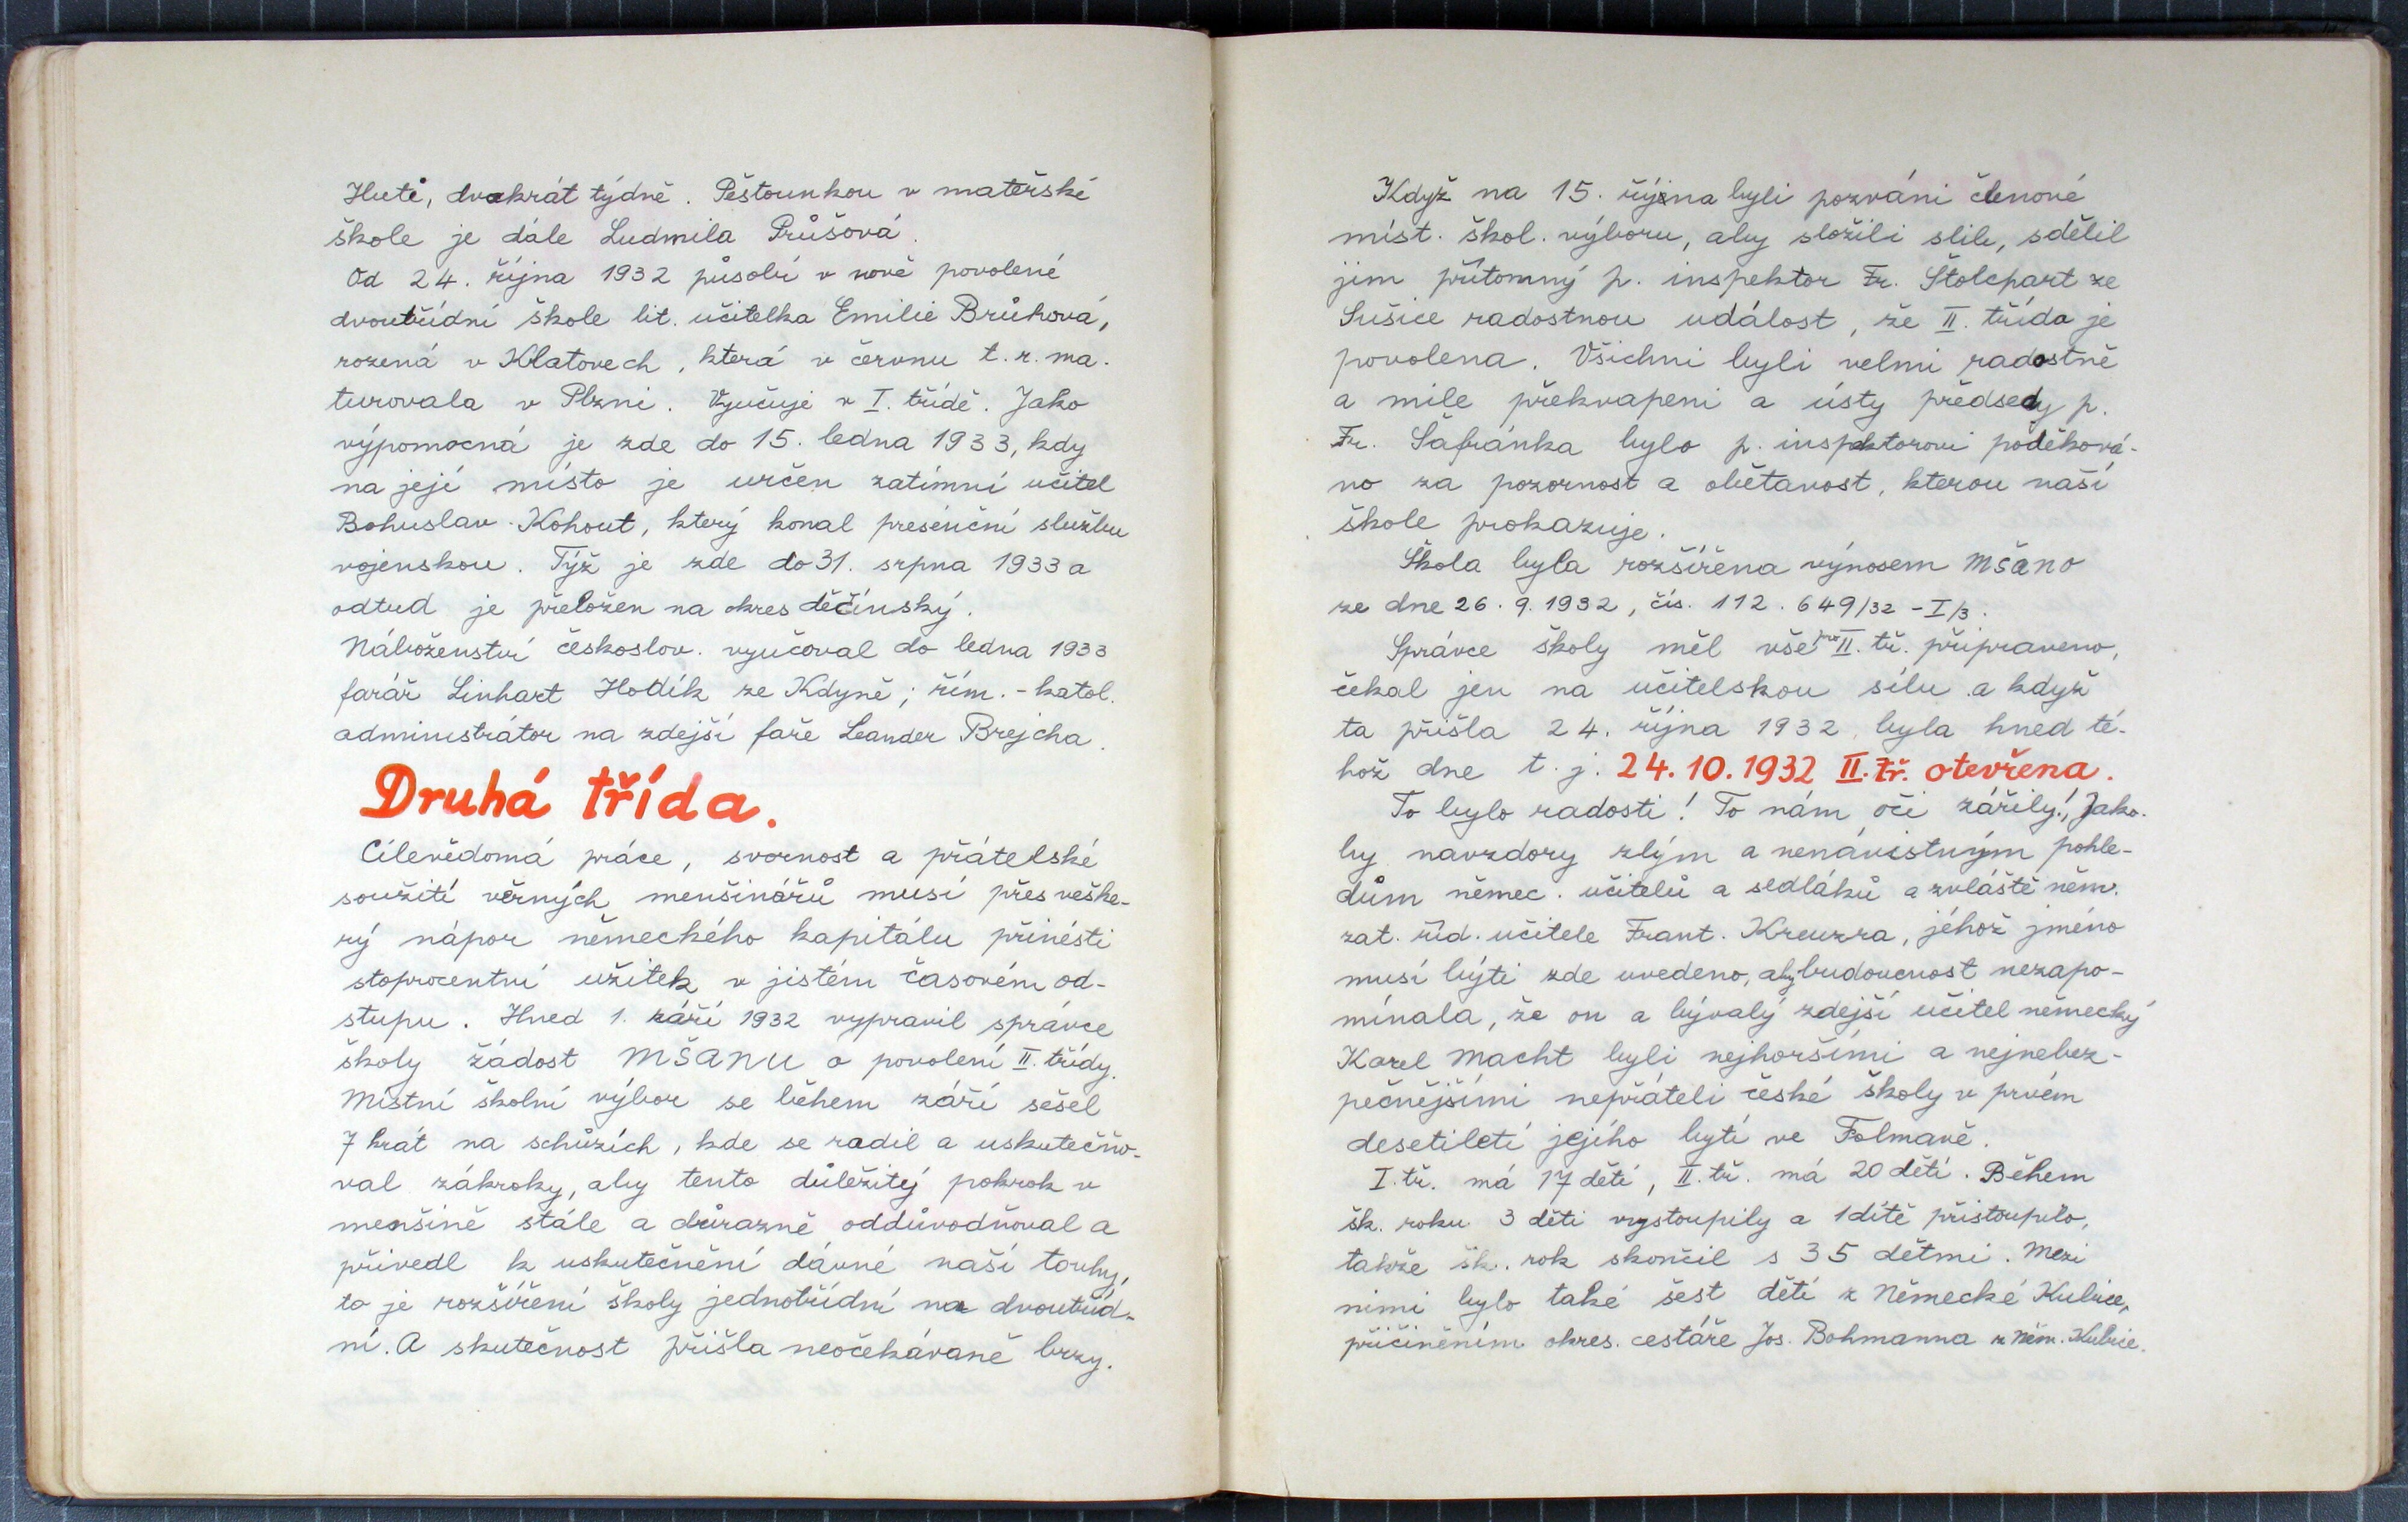 Hutě, dvakrát týdně. Pěstounkou v mateřské
škole je dále Ludmila Průšová.
Od 24. října 1932 působí v nově povolené
dvoutřídní škole lit. učitelka Emilie Brůhová,
rozená v Klatovech, která v červnu t. r. ma-
turovala v Plzni. Vyučuje v I. třídě. Jako
výpomocná je zde do 15. ledna 1933, kdy
na její místo je určen zatímní učitel
Bohuslav Kohout, který konal presenční službu
vojenskou. Týž je zde do 31. srpna 1933 a
odtud je přeložen na okres děčínský.
Náboženství českoslov. vyučoval do ledna 1933
farář Linhart Hodík ze Kdyně; řím.-katol.
administrátor na zdejší faře Leander Brejcha.
Druhá třída.
Cílevědomá práce, svornost a přátelské
soužití věrných menšinářů musí přes veške-
rý nápor německého kapitálu přinésti
stoprocentní užitek v jistém časovém od-
stupu. Hned 1. září 1932 vypravil správce
školy žádost MŠANU o povolení II. třídy.
Místní školní výbor se během září sešel
7 krát na schůzích, kde se radil a uskutečňo-
val zákroky, aby tento důležitý pokrok v
menšině stále a důrazně oddůvodňoval a
přivedl k uskutečnění dávné naší touhy,
to je rozšíření školy jednotřídní na dvoutříd-
ní. A skutečnost přišla neočekávaně brzy.
Když na 15. října byli pozváni členové
míst. škol. výboru, aby složili slib, sdělil
jim přítomný p. inspektor Fr. Štolcpart ze
Sušice radostnou událost, že II. třída je
povolena. Všichni byli velmi radostně
a mile překvapeni a ústy předsedy p.
Fr. Šafránka bylo p. inspektorovi poděková-
no za pozornost a obětavost, kterou naší
škole prokazuje.
Škola byla rozšířena výnosem MŠANO
ze dne 26. 9. 1932, čís. 112.649/32 - I/3.
Správce školy měl vše pro II. tř. připraveno,
čekal jen na učitelskou sílu a když
ta přišla 24. října 1932, byla hned té-
hož dne t. j. 24. 10. 1932 II. tř. otevřena.
To bylo radosti! To nám oči zářily! Jako-
by navzdory zlým a nenávistným pohle-
dům němec. učitelů a sedláků a zvláště něm.
zat. říd. učitele Frant. Kreuzra, jehož jméno
musí býti zde uvedeno, aby budoucnost nezapo-
mínala, že on a bývalý zdejší učitel německý
Karel Macht byli nejhoršími a nejnebez-
pečnějšími nepřáteli české školy v prvém
desetiletí jejího bytí ve Folmavě.
I. tř. má 17 dětí, II. tř. má 20 dětí. Během
šk. roku 3 děti vystoupily a 1 dítě přistoupilo,
takže šk. rok skončil s 35 dětmi. Mezi
nimi bylo také šest dětí z Německé Kubice,
přičiněním okres. cestáře Jos. Bohmanna z Něm. Kubice.